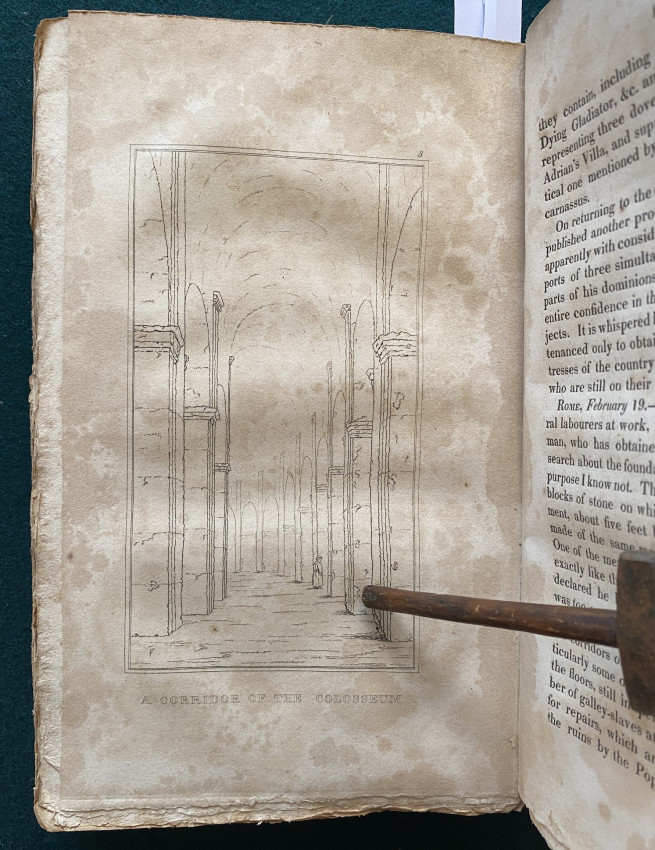 8
A CORRIDOR OF THE COLOSSEUM
they contain, including
Dying Gladiator, &c. an
representing three dove
Adrian's Villa, and sup
tical one mentioned by
carnassus.
On returning to the
published another pro
apparently with consid
ports of three simulta
parts of his dominions
entire confidence in th
jects. It is whispered
tenanced only to obtai
tresses of the country
who are still on their
ROME, February 19.—
ral labourers at work,
man, who has obtaine
search about the founda
purpose I know not. Th
blocks of stone on whi
ment, about five feet
made of the same
One of the me
exactly like th
declared he
was too
corridors o
ticularly some
the floors, still in
ber of galley-slaves at
for repairs, which ar
the ruins by the Pop